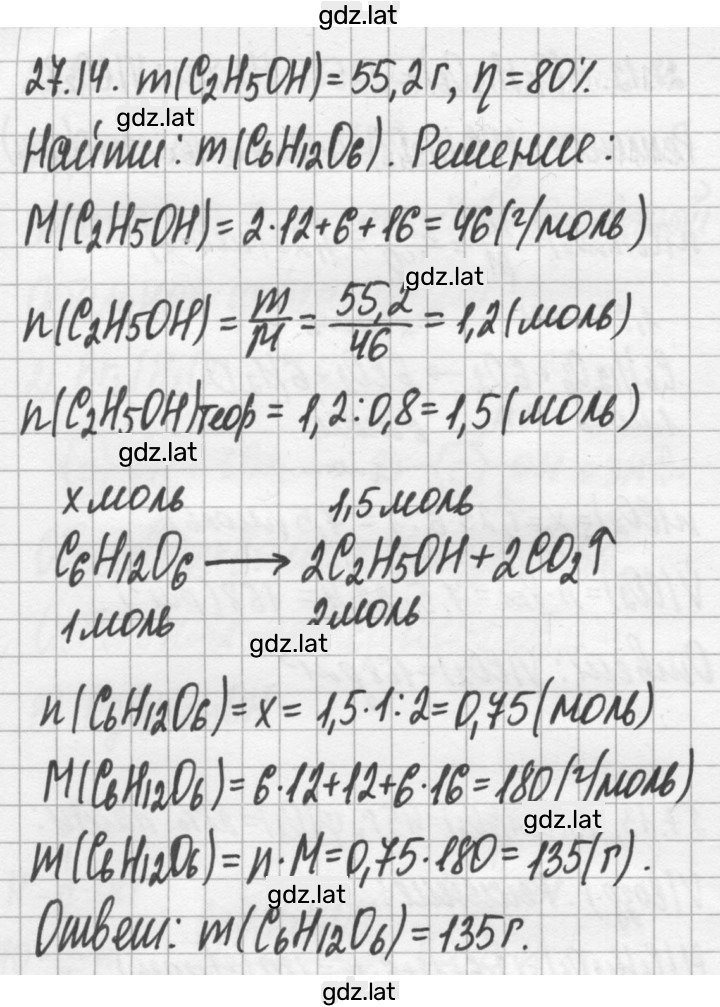 gdz.lat
27.14. m(C₂H₅OH)=55,2г, η=80%.
gdz.lat
Найти: m(C₆H₁₂O₆). Решение:
M(C₂H₅OH)=2·12+6+16=46(г/моль)
gdz.lat
n(C₂H₅OH)=m/M=55,2/46=1,2(моль)
n(C₂H₅OH)теор=1,2:0,8=1,5(моль)
gdz.lat
x моль 1,5 моль
C₆H₁₂O₆ → 2C₂H₅OH+2CO₂↑
1 моль 2 моль
gdz.lat
n(C₆H₁₂O₆)=x=1,5·1:2=0,75(моль)
M(C₆H₁₂O₆)=6·12+12+6·16=180(г/моль)
gdz.lat
m(C₆H₁₂O₆)=n·M=0,75·180=135(г).
gdz.lat
Ответ: m(C₆H₁₂O₆)=135г.
gdz.lat